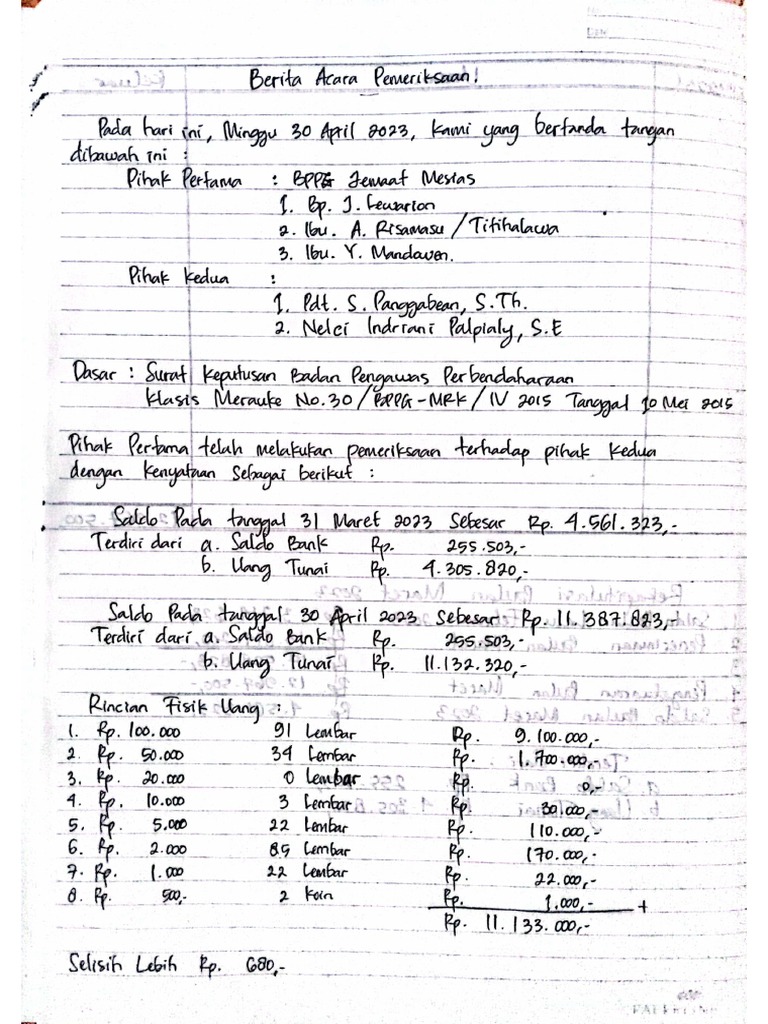 Berita Acara Pemeriksaan!
Pada hari ini, Minggu 30 April 2023, Kami yang bertanda tangan
dibawah ini :
Pihak Pertama : BPPG Jemaat Mesias
1. Bp. J. Lewarion
2. Ibu. A. Risamasu / Titihalawa
3. Ibu. Y. Mandawen.
Pihak Kedua :
1. Pdt. S. Panggabean, S.Th.
2. Nelci Indriani Palpialy, S.E
Dasar : Surat Keputusan Badan Pengawas Perbendaharaan
Klasis Merauke No.30 / BPPG-MRK / IV 2015 Tanggal 10 Mei 2015
Pihak Pertama telah melakukan pemeriksaan terhadap pihak kedua
dengan kenyataan sebagai berikut :
Saldo Pada tanggal 31 Maret 2023 Sebesar Rp. 4.561.323,-
Terdiri dari a. Saldo Bank Rp. 255.503,-
b. Uang Tunai Rp. 4.305.820,-
Saldo Pada tanggal 30 April 2023 Sebesar Rp. 11.387.823,-
Terdiri dari a. Saldo Bank Rp. 255.503,-
b. Uang Tunai Rp. 11.132.320,-
Rincian Fisik Uang :
1. Rp. 100.000 91 Lembar Rp. 9.100.000,-
2. Rp. 50.000 34 Lembar Rp. 1.700.000,-
3. Rp. 20.000 0 Lembar Rp. 0,-
4. Rp. 10.000 3 Lembar Rp. 30.000,-
5. Rp. 5.000 22 Lembar Rp. 110.000,-
6. Rp. 2.000 85 Lembar Rp. 170.000,-
7. Rp. 1.000 22 Lembar Rp. 22.000,-
8. Rp. 500,- 2 Koin Rp. 1.000,- +
Rp. 11.133.000,-
Selisih Lebih Rp. 680,-